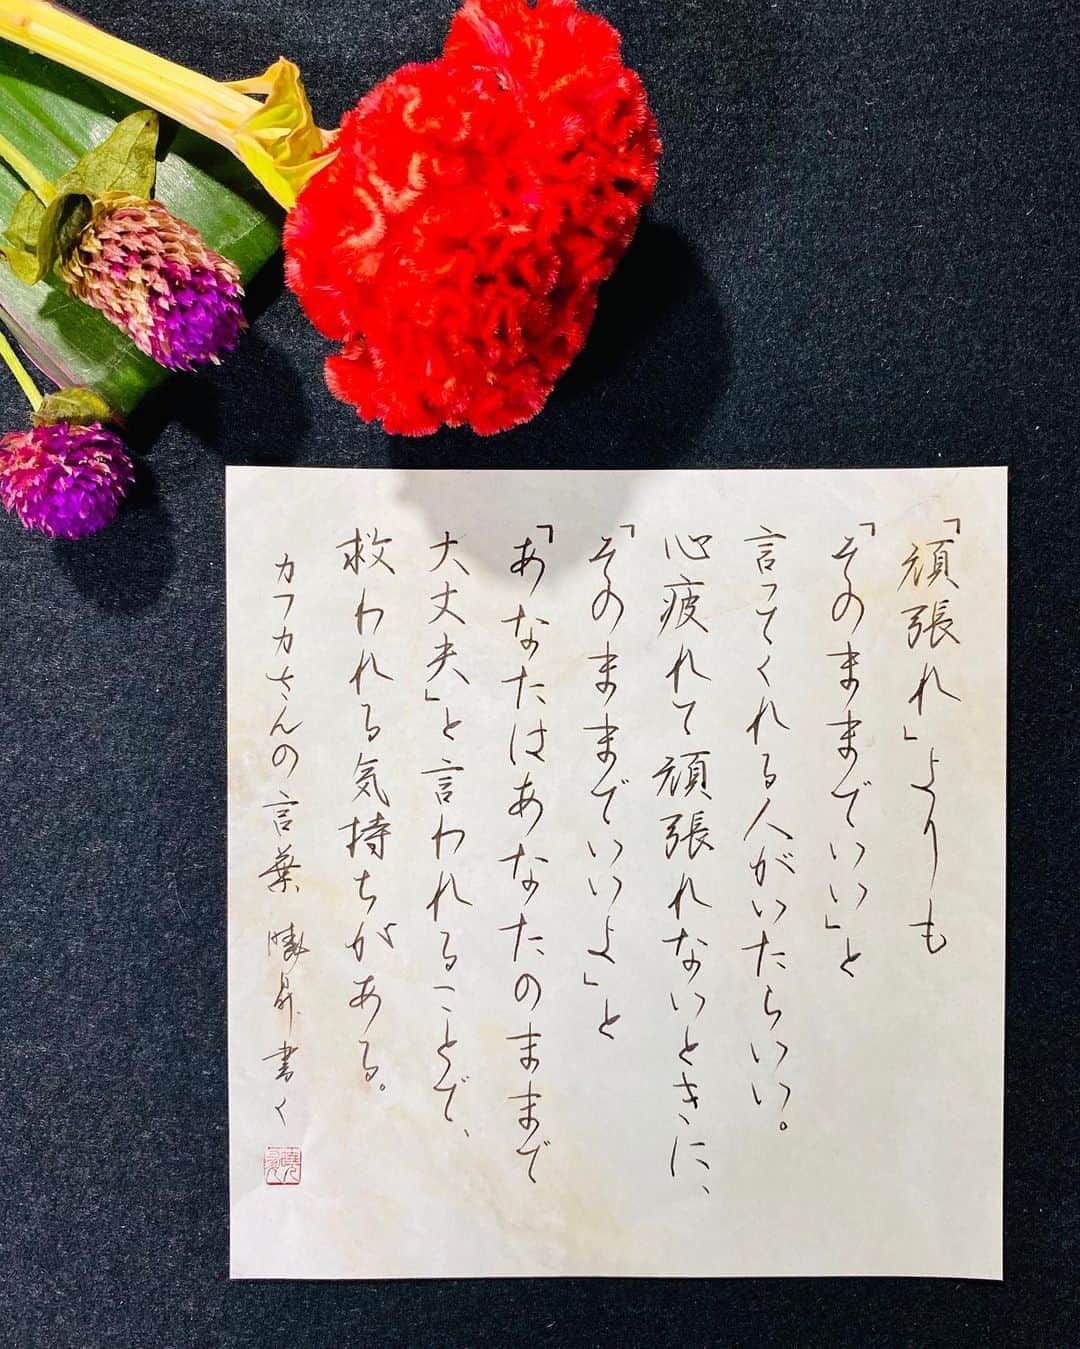 「頑張れ」よりも
「そのままでいい」と
言ってくれる人がいたらいい。
心疲れて頑張れないときに、
「そのままでいいよ」と
「あなたはあなたのままで
大丈夫」と言われることで、
救われる気持ちがある。
カフカさんの言葉 昇 書く